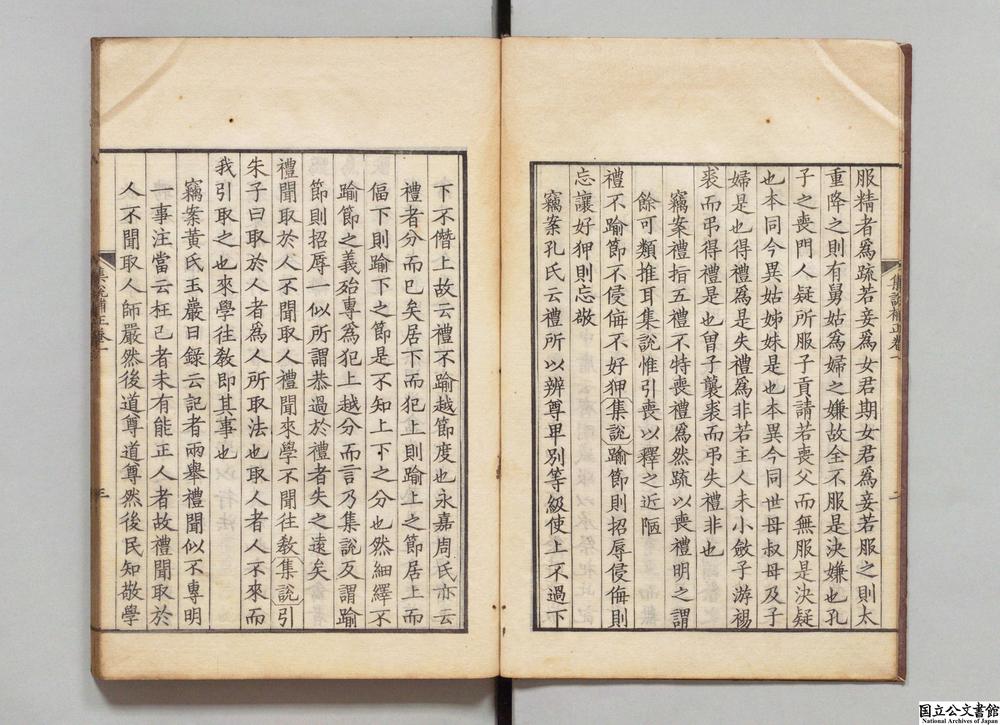 服精者為疏若妾為女君期女君為妾若服之則太
重降之則有舅姑為婦之嫌故全不服是決嫌也孔
子之喪門人疑所服子貢請若喪父而無服是決疑
也本同今異姑姊妹是也本異今同世母叔母及子
婦是也得禮為是失禮為非若主人未小斂子游裼
裘而弔得禮是也曽子襲裘而弔失禮非也
竊案禮指五禮不特喪禮為然疏以喪禮明之謂
餘可類推耳集説惟引喪以釋之近陋
禮不踰節不侵侮不好狎集説踰節則招辱侵侮則
忘讓好狎則忘敬
竊案孔氏云禮所以辨尊卑別等級使上不過下
集說補正卷一
二
下不僭上故云禮不踰越節度也永嘉周氏亦云
禮者分而已矣居下而犯上則踰上之節居上而
偪下則踰下之節是不知上下之分也然細繹不
踰節之義殆專為犯上越分而言乃集說反謂踰
節則招辱一似所謂恭過於禮者失之遠矣
禮聞取於人不聞取人禮聞來學不聞往敎集說引
朱子曰取於人者為人所取法也取人者人不來而
我引取之也來學往敎即其事也
竊案黃氏玉巖日録云記者兩舉禮聞似不專明
一事注當云枉已者未有能正人者故禮聞取於
人不聞取人師嚴然後道尊道尊然後民知敬學
集說補正卷一
三
国立公文書館
National Archives of Japan